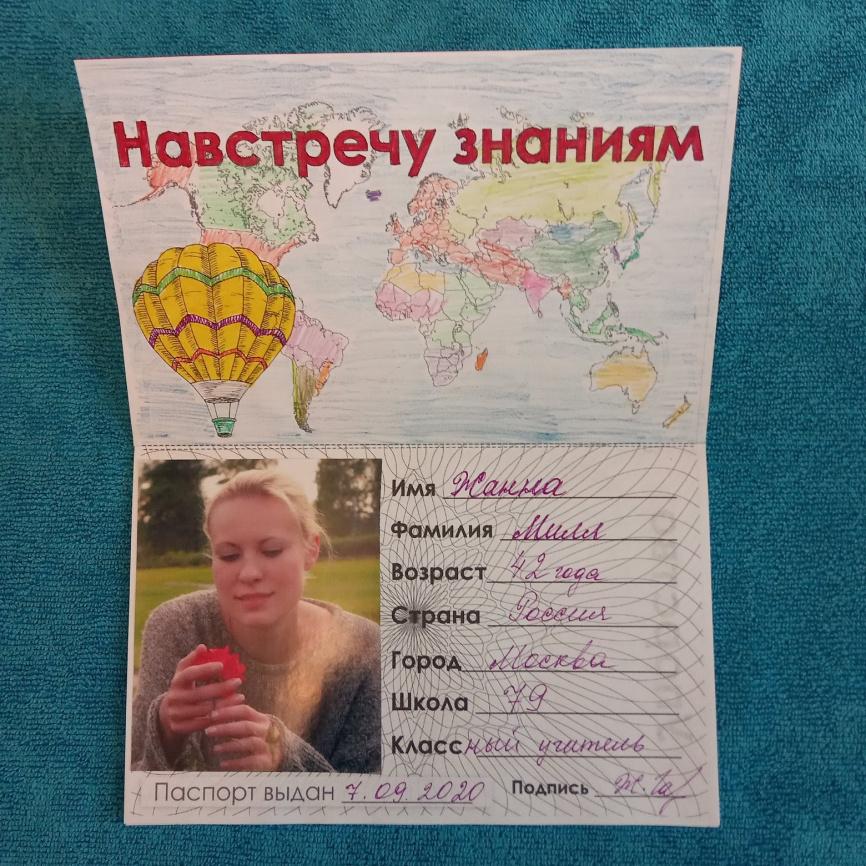 Навстречу знаниям
Имя Жанна
Фамилия Милл
Возраст 42 года
Страна Россия
Город Москва
Школа 79
Классный учитель
Паспорт выдан 7.09.2020 Подпись